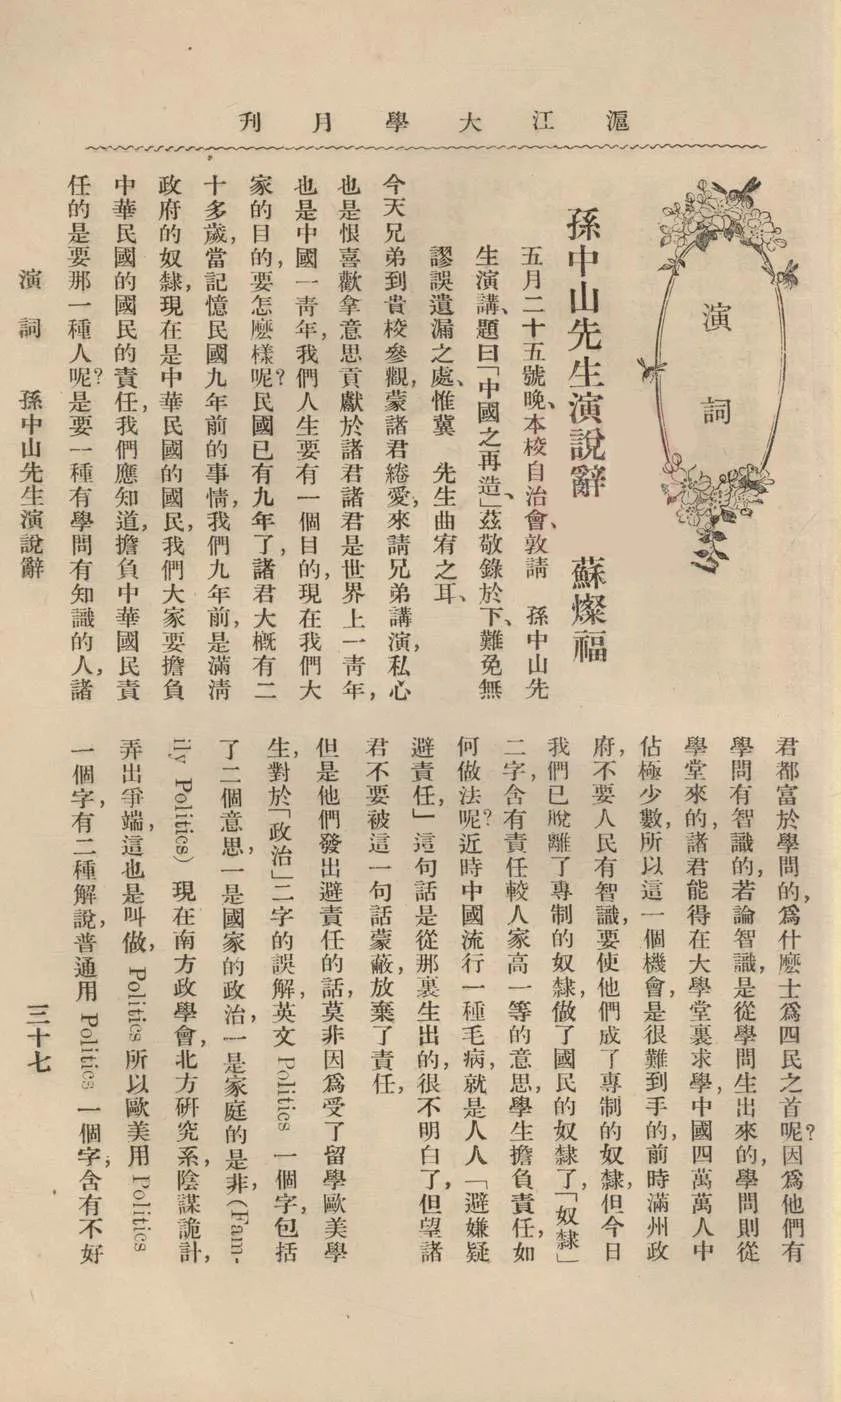 滬江大學月刊
演詞
孫中山先生演說辭　蘇燦福
五月二十五號晚、本校自治會、敦請　孫中山先
生演講、題曰「中國之再造、」茲敬錄於下、難免無
謬誤遺漏之處、惟冀　先生曲宥之耳、
今天兄弟到貴校參觀，蒙諸君綣愛，來請兄弟講演，私心
也是恨喜歡拿意思貢獻於諸君諸君是世界上一青年，
也是中國一靑年，我們人生要有一個目的，現在我們大
家的目的，要怎麼樣呢？民國已有九年了，諸君大槪有二
十多歲，當記憶民國九年前的事情，我們九年前，是滿淸
政府的奴隸，現在是中華民國的國民，我們大家要擔負
中華民國的國民的責任，我們應知道，擔負中華國民責
任的是要那一種人呢？是要一種有學問有知識的人，諸
君都富於學問的，爲什麽士爲四民之首呢？因爲他們有
學問有智識的，若論智識，是從學問生出來的，學問則從
學堂來的，諸君能得在大學堂裏求學，中國四萬萬人中
佔極少數，所以這一個機會，是很難到手的，前時滿州政
府，不要人民有智識，要使他們成了專制的奴隸，但今日
我們已脫離了專制的奴隸，做了國民的奴隸了，「奴隸」
二字，含有責任較人家高一等的意思，學生擔負責任，如
何做法呢？近時中國流行一種毛病，就是人人「避嫌疑
避責任，」這句話是從那裏生出的，很不明白了，但望諸
君不要被這一句話蒙蔽，放棄了責任，
但是他們發出避責任的話，莫非因爲受了留學歐美學
生，對於「政治」二字的誤解，英文 Politics 一個字，包括
了二個意思，一是國家的政治，一是家庭的是非，(Fam-
ily Politics) 現在南方政學會，北方硏究系，陰謀詭計，
弄出爭端，這也是叫做，Politics 所以歐美用 Politics
一個字，有二種解說，普通用 Politics 一個字，含有不好
演詞　孫中山先生演說辭
三十七